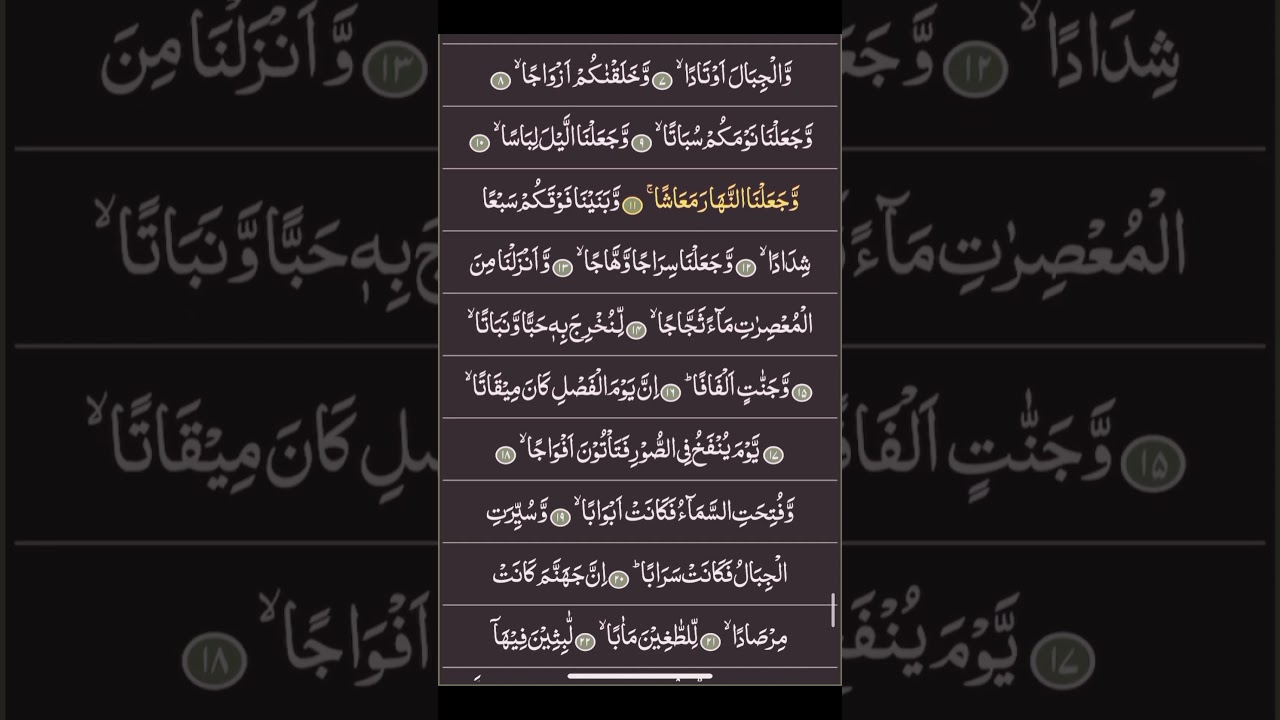 وَّالۡجِبَالَ اَوۡتَادًا ۙ ﴿۷﴾ وَّخَلَقۡنٰكُمۡ اَزۡوَاجًا ۙ ﴿۸﴾
وَّجَعَلۡنَا نَوۡمَكُمۡ سُبَاتًا ۙ ﴿۹﴾ وَّجَعَلۡنَا الَّيۡلَ لِبَاسًا ۙ ﴿۱۰﴾
وَّجَعَلۡنَا النَّهَارَ مَعَاشًا ۚ ﴿۱۱﴾ وَّبَنَيۡنَا فَوۡقَكُمۡ سَبۡعًا
شِدَادًا ۙ ﴿۱۲﴾ وَّجَعَلۡنَا سِرَاجًا وَّهَّاجًا ۙ ﴿۱۳﴾ وَّاَنۡزَلۡنَا مِنَ
الۡمُعۡصِرٰتِ مَآءً ثَجَّاجًا ۙ ﴿۱۴﴾ لِّنُخۡرِجَ بِهٖ حَبًّا وَّنَبَاتًا ۙ
﴿۱۵﴾ وَّجَنّٰتٍ اَلۡفَافًا ؕ ﴿۱۶﴾ اِنَّ يَوۡمَ الۡفَصۡلِ كَانَ مِيۡقَاتًا ۙ
﴿۱۷﴾ يَّوۡمَ يُنۡفَخُ فِى الصُّوۡرِ فَتَاۡتُوۡنَ اَفۡوَاجًا ۙ ﴿۱۸﴾
وَّفُتِحَتِ السَّمَآءُ فَكَانَتۡ اَبۡوَابًا ۙ ﴿۱۹﴾ وَّسُيِّرَتِ
الۡجِبَالُ فَكَانَتۡ سَرَابًا ؕ ﴿۲۰﴾ اِنَّ جَهَنَّمَ كَانَتۡ
مِرۡصَادًا ۙ ﴿۲۱﴾ لِّلطّٰغِيۡنَ مَاٰبًا ۙ ﴿۲۲﴾ لّٰبِثِيۡنَ فِيۡهَاۤ